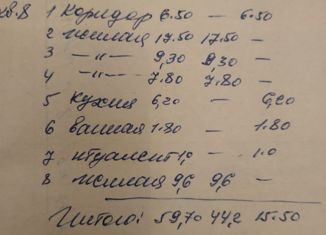 кв.8 1 Коридор 6.50 — 6.50
2 жилая 17.50 17.50 —
3 —"— 9,30 9.30 —
4 —"— 7.80 7.80 —
5 кухня 6,20 — 6,20
6 ванная 1.80 — 1.80
7 туалет 1,0 — 1.0
8 жилая 9,6 9,6 —
Итого: 59,70 44,2 15.50